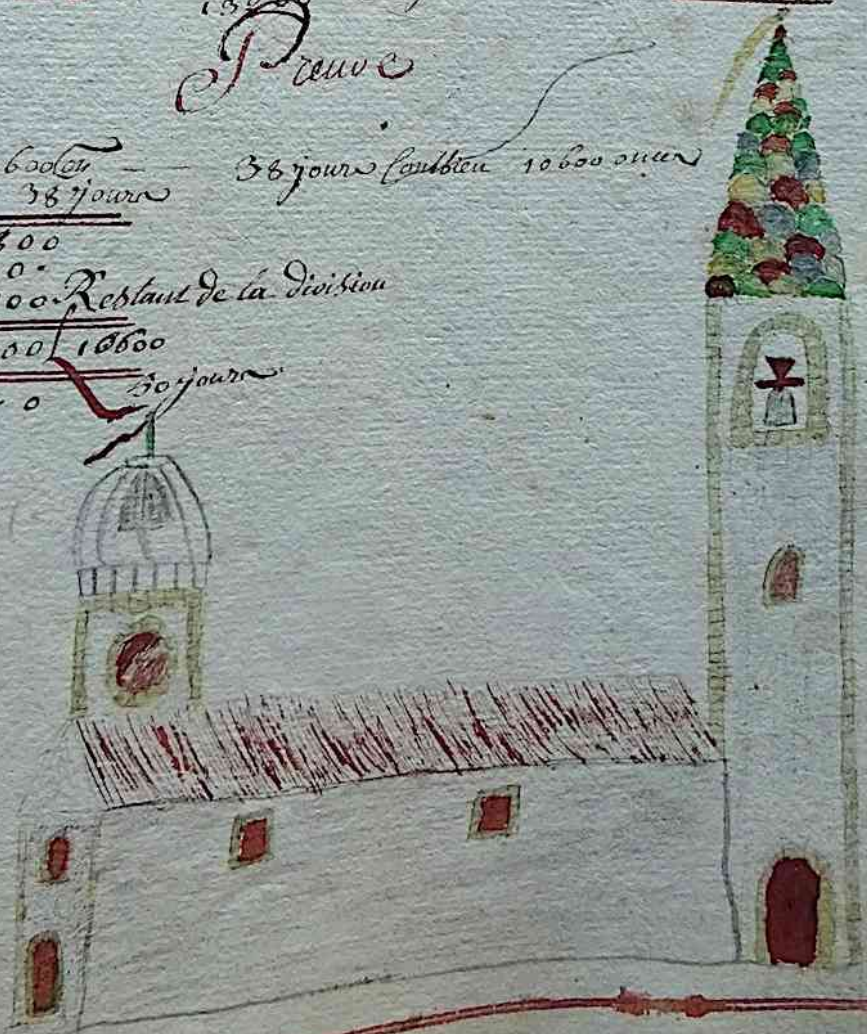 Preuve
600 — 38 jours Combien 10600 onces
38 jours
00
0
00 Restant de la division
00 10600
50 jours
0